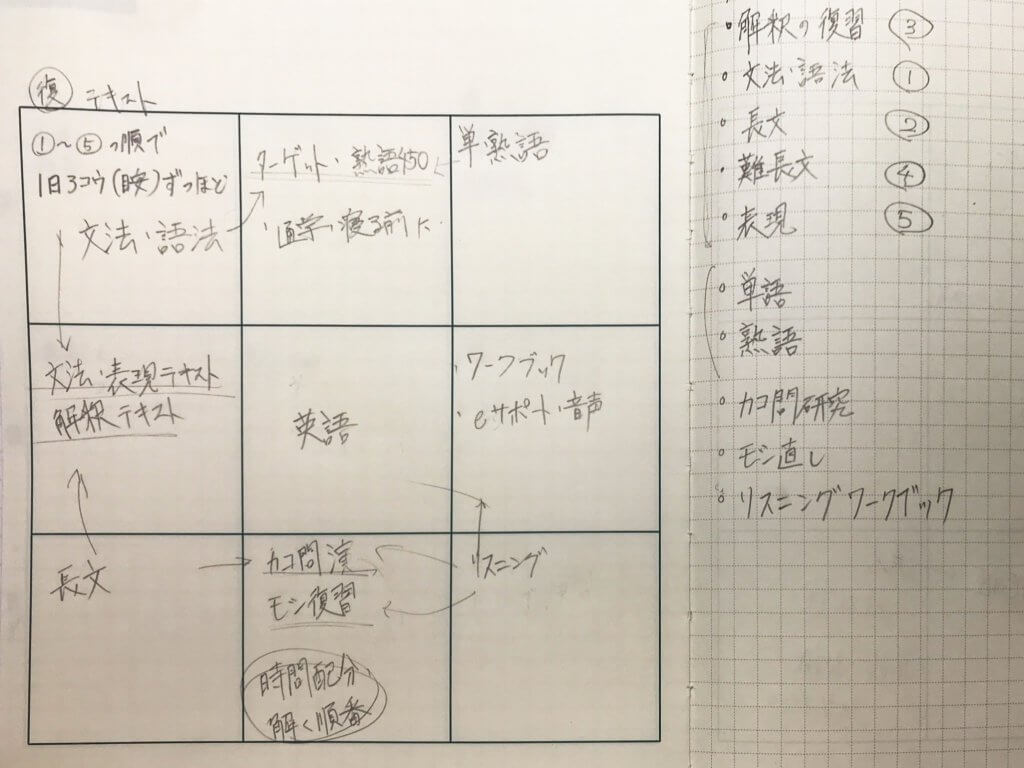 復 テキスト
①〜⑤の順で
1日3コウ(時)ずつほど
文法・語法
ターゲット・熟語450
・通学・寝る前に
単熟語
文法・表現テキスト
解釈テキスト
英語
・ワークブック
・eサポート・音声
長文
カコ問演
モシ復習
時間配分
解く順番
リスニング
解釈の復習 ③
文法・語法 ①
長文 ②
難長文 ④
表現 ⑤
単語
熟語
カコ問研究
モシ直し
リスニングワークブック